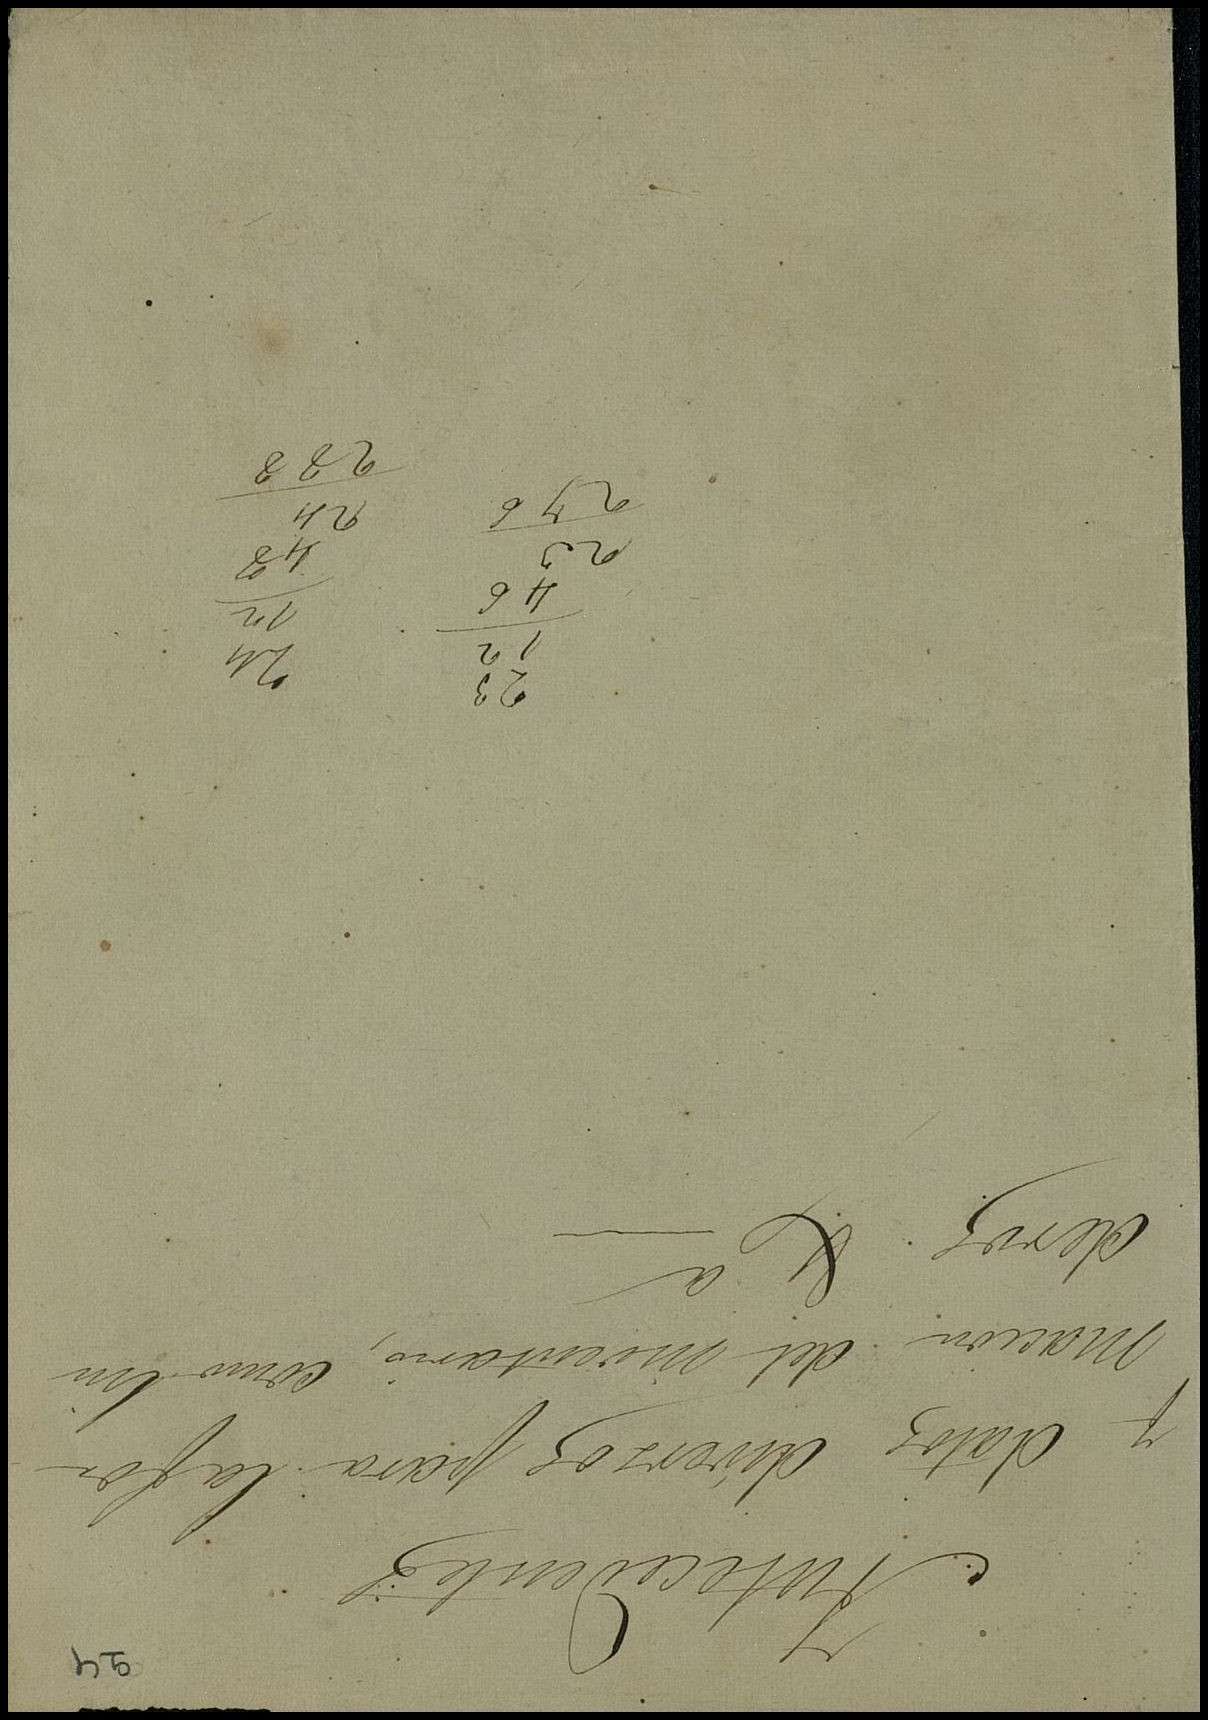 54
Antecedentes
y datos diversos para la for-
macion del inventario, como lin
deros &a
23
12
46
23
276
24
12
48
24
288